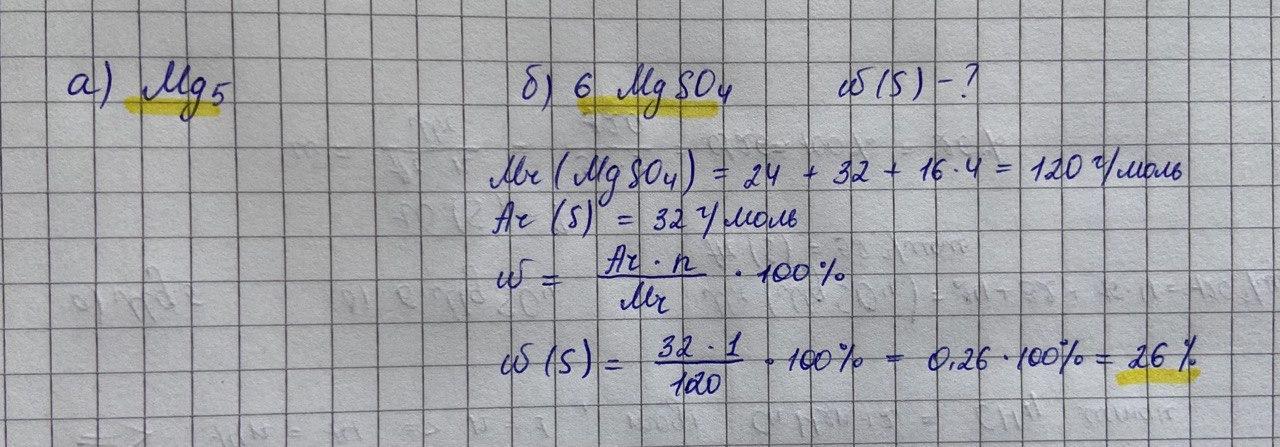 а) Mg5
б) 6 MgSO4 ω(S) - ?
Mr(MgSO4) = 24 + 32 + 16·4 = 120 г/моль
Ar(S) = 32 г/моль
ω = Ar · n / Mr · 100%
ω(S) = 32 · 1 / 120 · 100% = 0,26 · 100% = 26%